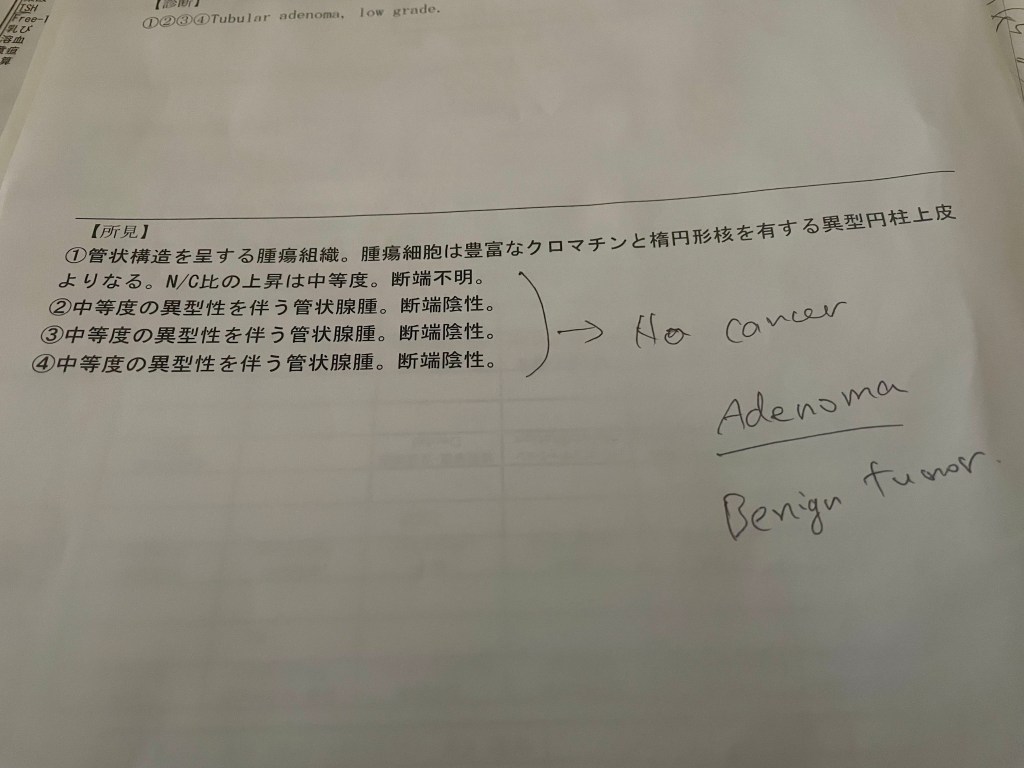 【診断】
①②③④Tubular adenoma, low grade.
【所見】
①管状構造を呈する腫瘍組織。腫瘍細胞は豊富なクロマチンと楕円形核を有する異型円柱上皮
よりなる。N/C比の上昇は中等度。断端不明。
②中等度の異型性を伴う管状腺腫。断端陰性。
③中等度の異型性を伴う管状腺腫。断端陰性。
④中等度の異型性を伴う管状腺腫。断端陰性。
→ No cancer
Adenoma
Benign tumor.
TSH
乳び
溶血